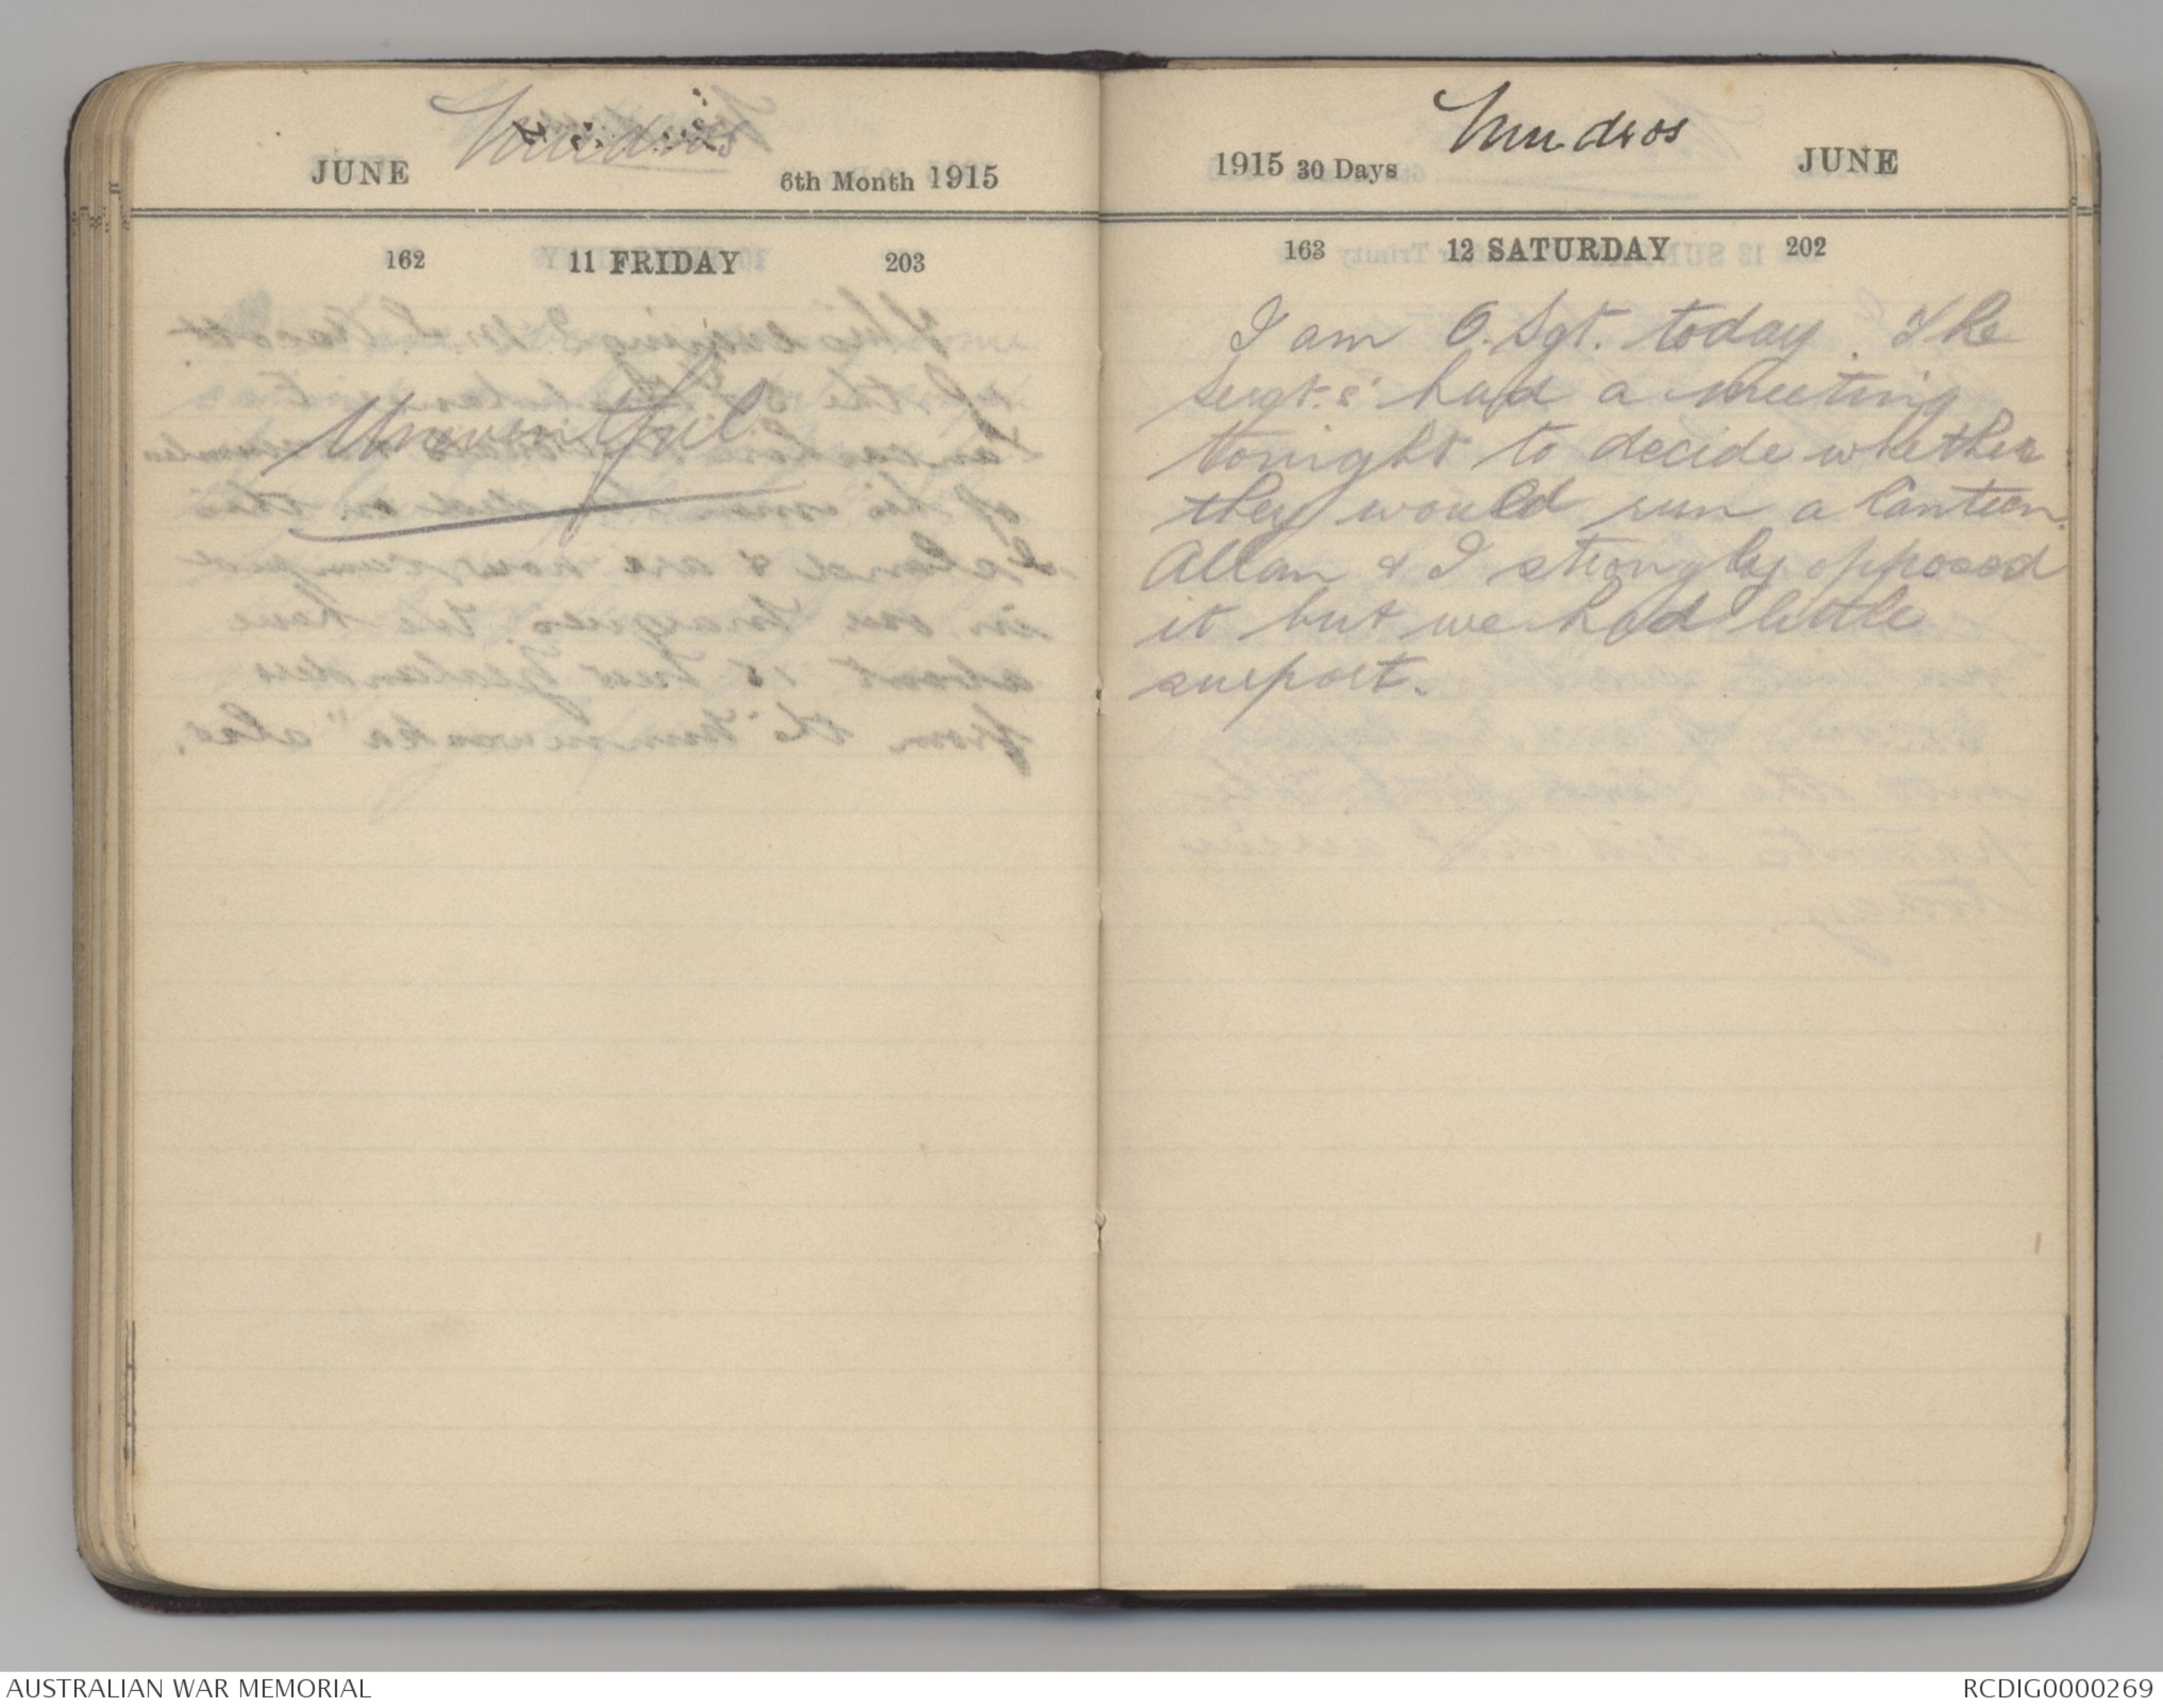 Mudros
JUNE 6th Month 1915
162 11 FRIDAY 203
Uneventful
Mudros
1915 30 Days JUNE
163 12 SATURDAY 202
I am O. Sgt. today. The
Sergts' had a meeting
tonight to decide whether
they would run a Canteen.
Allan & I strongly opposed
it but we had little
support.
AUSTRALIAN WAR MEMORIAL
RCDIG0000269